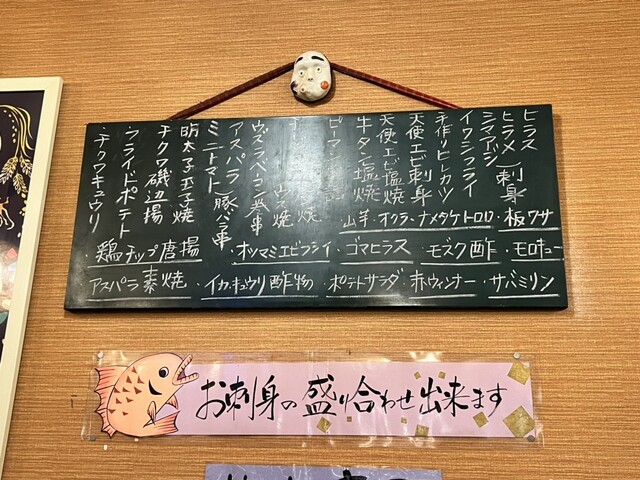 ヒラス
ヒラメ
シマアジ
刺身
イワシフライ
手作りヒレカツ
天使エビ刺身
天使エビ塩焼
牛タン塩焼
ピーマン
ウズラベーコン巻串
アスパラ
ミニトマト
豚バラ串
明太子玉子焼
チクワ磯辺揚
フライドポテト
・チクワキュウリ
山芋・オクラ・ナメタケトロロ・板ワサ
鶏チップ唐揚・オツマミエビフライ・ゴマヒラス モズク酢・モロキュー
アスパラ素焼・イカ・キュウリ酢物・ポテトサラダ・赤ウィンナー・サバミリン
お刺身の盛り合わせ出来ます